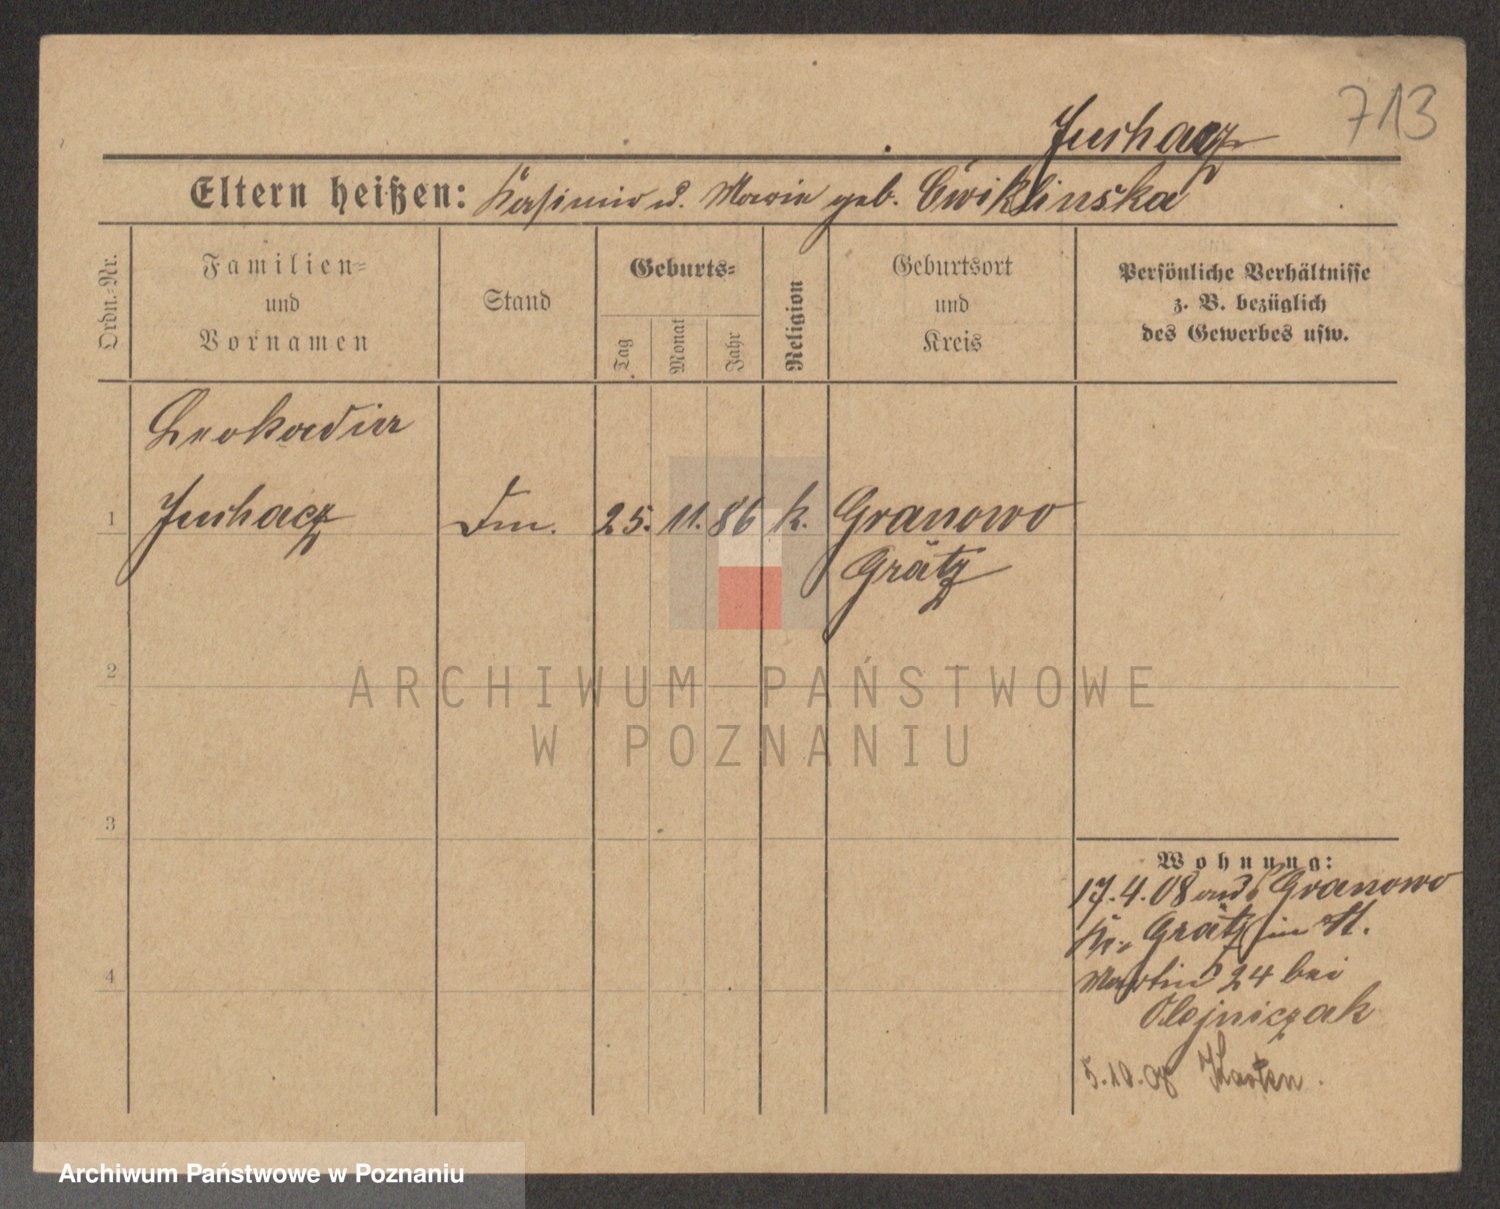 713
Juchacz
Eltern heißen: Kasimir u. Marie geb. Ćwiklinska
Ordn.-Nr.
Familien-
und
Vornamen
Stand
Geburts-
Tag
Monat
Jahr
Religion
Geburtsort
und
Kreis
Persönliche Verhältnisse
z. B. bezüglich
des Gewerbes usw.
Leokadia
1 Juchacz 25. 11. 86 k. Granowo
Grätz
2
ARCHIWUM PAŃSTWOWE
W POZNANIU
3
4
Wohnung:
17.4.08 aus Granowo
Kr. Grätz in St.
Martin 24 bei
Olejniczak
5.10.08
Archiwum Państwowe w Poznaniu